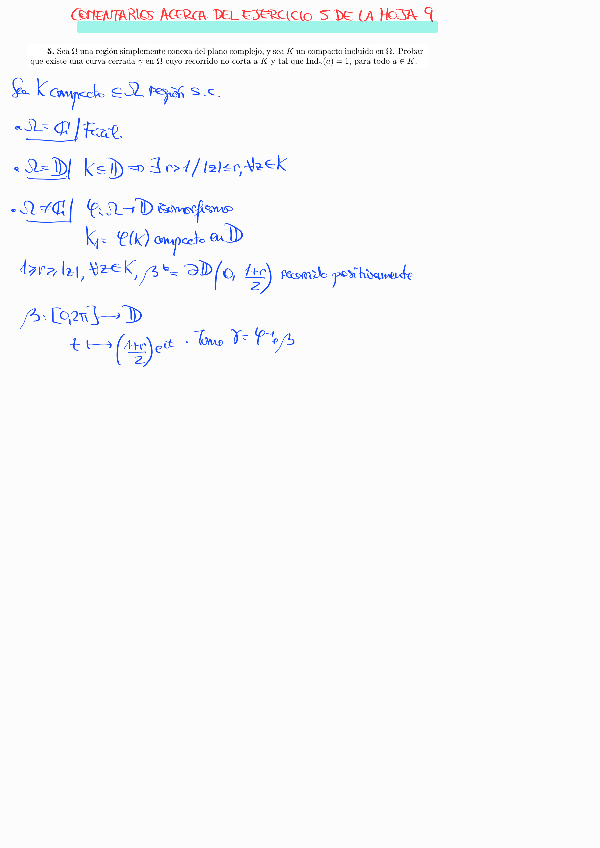 COMENTARIOS ACERCA DEL EJERCICIO 5 DE LA HOJA 9
5. Sea Ω una región simplemente conexa del plano complejo, y sea K un compacto incluido en Ω. Probar
que existe una curva cerrada γ en Ω cuyo recorrido no corta a K y tal que Indγ(a) = 1, para todo a ∈ K.
Sea K compacto ⊆ Ω región s.c.
• Ω = ℂ / Fácil.
• Ω = 𝔻 / K ⊆ 𝔻 ⇒ ∃ r > 1 / |z| ≤ r, ∀z ∈ K
• Ω ≠ ℂ / φ: Ω → 𝔻 isomorfismo
K₁ = φ(K) compacto en 𝔻
1 ≥ r ≥ |z|, ∀z ∈ K, β* = ∂𝔻(0, (1+r)/2) recorrido positivamente
β: [0,2π] → 𝔻
t ↦ ((1+r)/2) e^{it} . Tomo γ = φ⁻¹∘β